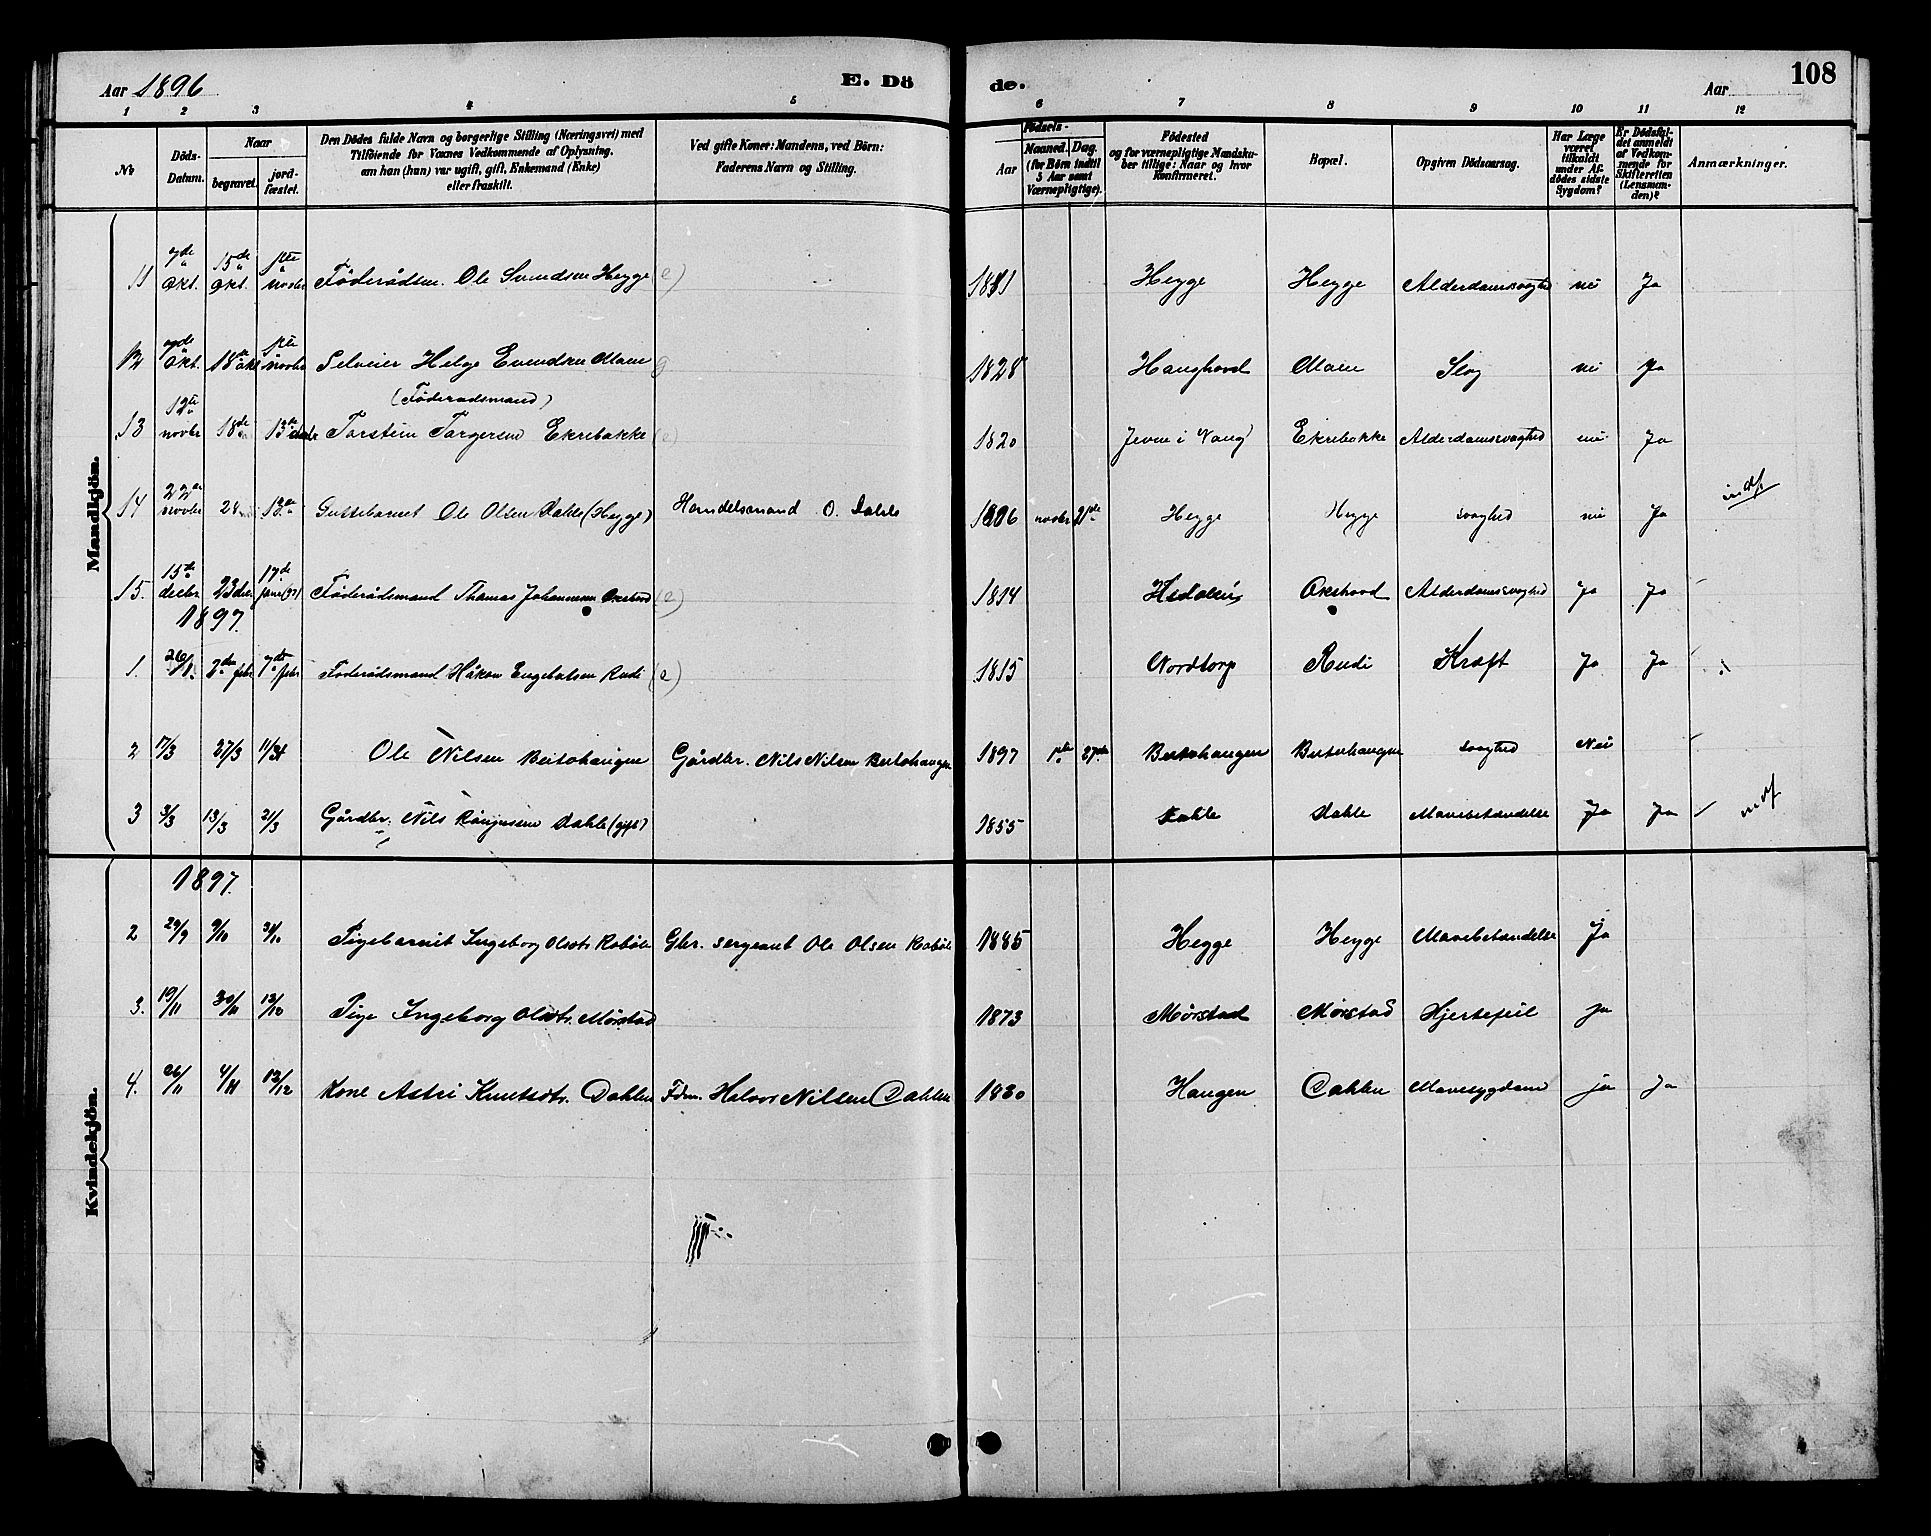 Aar 1896 E. Dö de. Aar 108
1 2 3 4 5 6 7 8 9 10 11 12
No
Döds-Datum.
Naar
begravet.
jord-fæstet.
Den Dödes fulde Navn og borgerlige Stilling (Næringsvei) med
Tilföiende for Voxnes Vedkommende af Oplysning,
om han (hun) var ugift, gift, Enkemand (Enke)
eller fraskilt.
Ved gifte Koner: Mandens, ved Börn:
Faderens Navn og Stilling.
Födsels-
Aar
Maaned. Dag.
(for Börn indtil
5 Aar samt
Værnepligtige).
Födested
og for værnepligtige Mandsku-
ber tillige: Naar og hvor
konfirmeret.
Bopæl.
Opgiven Dödsaarsag.
Har Læge
været
tilkaldt
under Af-
dödes sidste
Sygdom?
Er Dödsfal-
det anmeldt
af Vedkom-
mende for
Skifteretten
(Lensman-
den)?
Anmærkninger.
Mandkjön.
11 7de Okt. 15de Okt. 1ste novbr Föderådsm. Ole Svendsen Hegge (e) 1811 Hegge Hegge Alderdomssvaghed nei Ja
12 7de Okt. 18de okt 1ste novbr Selveier Helge Evendsen Moen g 1828 Haughovd Moen Slag nei Ja
(Föderadsmand)
13 12te novbr 18de 13de decbr Torstein Torgersen Ekrebakke (e) 1820 Jevne i Vang Ekrebakke Alderdomssvaghed nei Ja
14 22de novbr 28 13de Guttebarnet Ole Olsen Dahle (Hegge) Handelsmand O. Dahle 1896 novbr 21de Hegge Hegge svaghed nei Ja indf
15. 15de decbr 23 dec. 17de janr (97) Föderådsmand Thomas Johannesen Oxehovd (e) 1814 Hedalen Oxehovd Alderdomssvaghed Ja Ja
1897.
1. 26/1. 7de febr 7de febr Föderådsmand Håkon Engebretsen Rudi (e) 1815 Nordtorp Rudi Kræft Ja Ja
2 17/3 27/3 11/4 Ole Nilsen Beitohaugen Gårdbr. Nils Nilsen Beitohaugen 1897 1ste 27de Beitohaugen Beitohaugen svaghed Nei
3 3/3 13/3 21/3 Gårdbr. Nils Dahle (gift) 1855 Dahle Dahle Mavebetændelse Ja Ja indf
Kvindekjön.
1897.
2 29/9 9/10 31/10 Pigebarnet Ingeborg Olsdtr. Robøle Gbr. sergeant Ole Olsen Robøle 1885 Hegge Hegge Mavebetændelse Ja
3. 19/11 30/11 12/12 Pige Ingeborg Olsdtr. Mørstad 1873 Mørstad Mørstad Hjertefeil Ja
4. 26/11 4/11 12/12 Kone Astri Knutsdtr. Dahlen Fdm. Halvor Nilsen Dahlen 1830 Haugen Dahlen Mavesygdom ja Ja